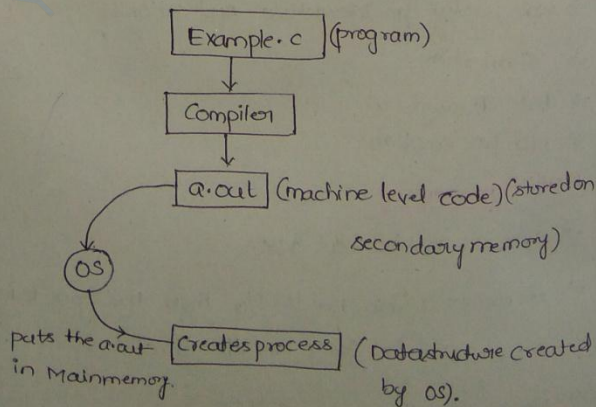 Example.c (program)
Compiler
a.out (machine level code)(stored on
secondary memory)
OS
puts the a.out
in Mainmemory.
Creates process (Datastructure created
by OS).